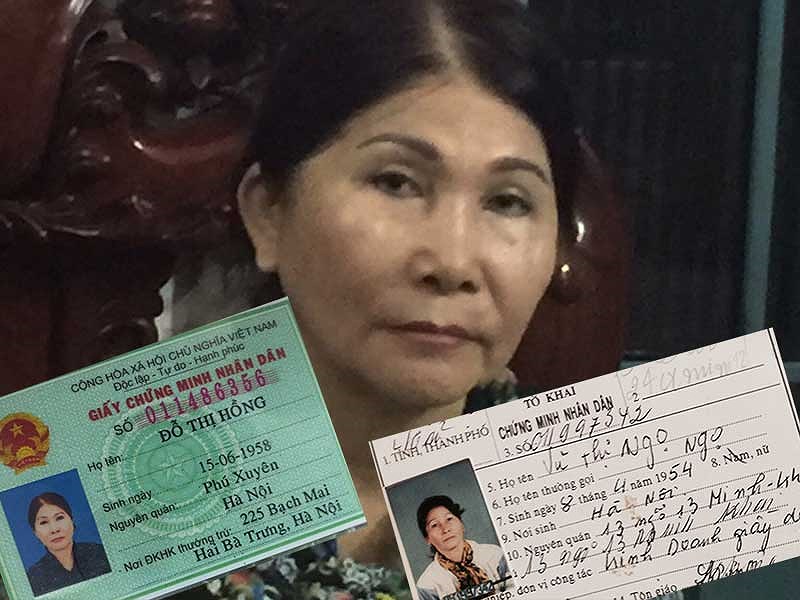 CỘNG HÒA XÃ HỘI CHỦ NGHĨA VIỆT NAM
Độc lập - Tự do - Hạnh phúc
GIẤY CHỨNG MINH NHÂN DÂN
SỐ 011486356
Họ tên: ĐỖ THỊ HỒNG
Sinh ngày 15-06-1958
Nguyên quán: Phú Xuyên
Hà Nội
Nơi ĐKHK thường trú: 225 Bạch Mai
Hai Bà Trưng, Hà Nội
TỜ KHAI
CHỨNG MINH NHÂN DÂN
1. TỈNH, THÀNH PHỐ
3. SỐ 011997342
5. Họ tên Vũ Thị Ngọ
6. Họ tên thường gọi Ngọ
7. Sinh ngày 8 tháng 4 năm 1954 8. Nam, nữ
9. Nơi sinh Hà Nội
10. Nguyên quán 13 ngõ 13 Minh-Kh
13 ngõ 13
nghiệp, đơn vị công tác Kinh Doanh giầy d
14. Tôn giáo